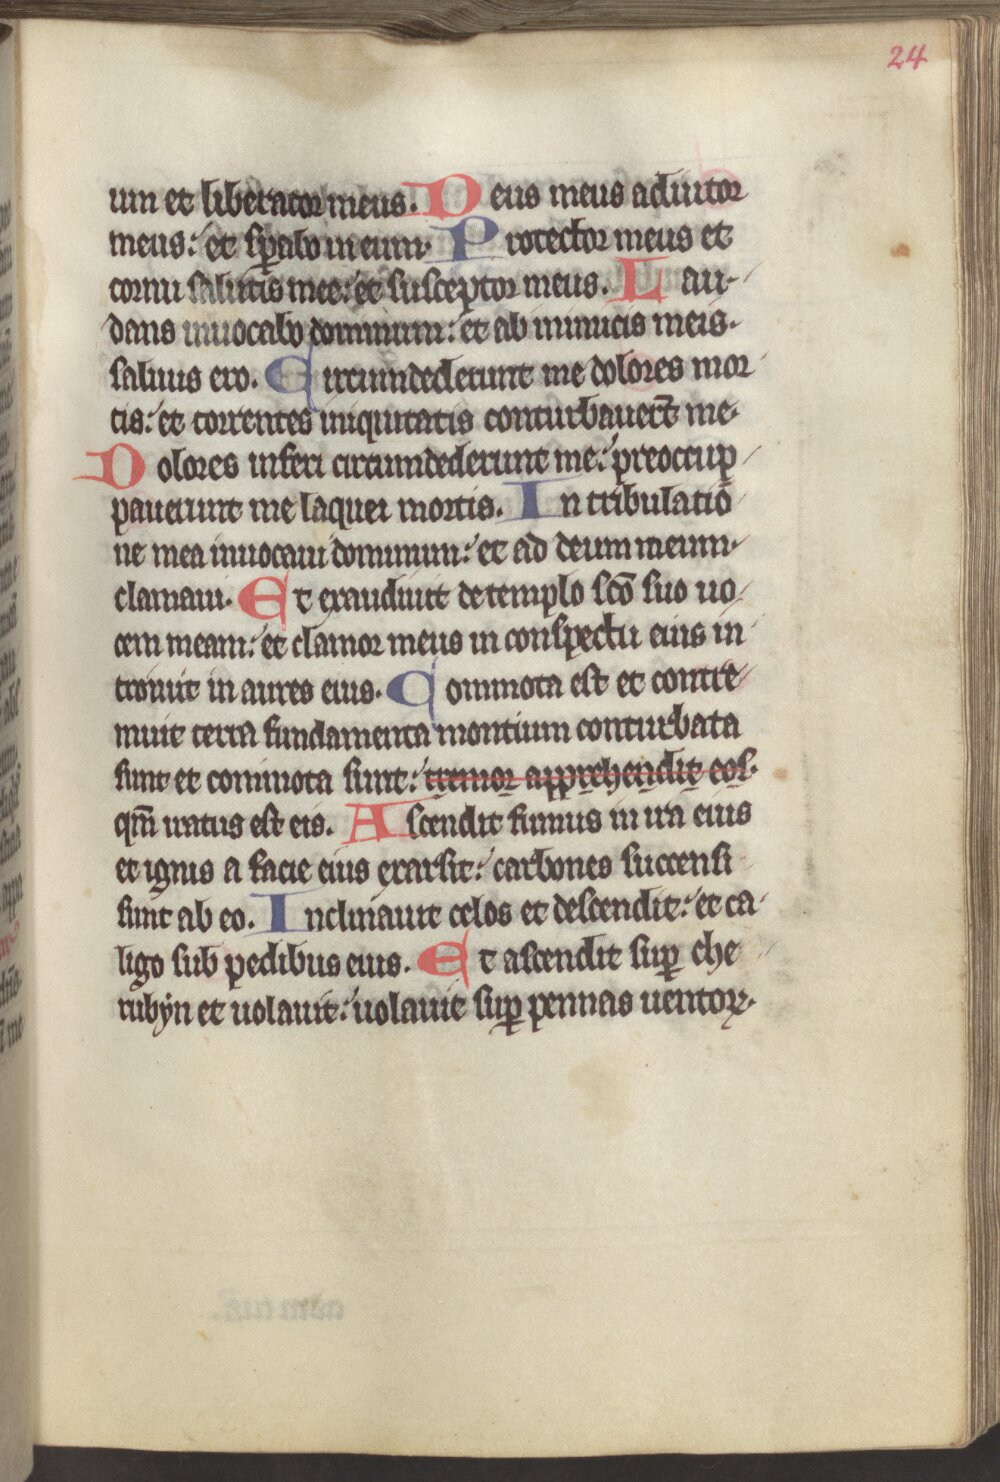 24
um et liberator meus. Deus meus adiutor
meus: et sꝑabo in eum. Protector meus et
cornu salutis mee: et susceptor meus. Lau-
dans inuocabo dominum: et ab inimicis meis
saluus ero. Circumdederunt me dolores mor
tis: et torrentes iniquitatis conturbauerūt me.
Dolores inferi circumdederunt me: preoccup
pauerunt me laquei mortis. In tribulatiō
ne mea inuocaui dominum: et ad deum meum
clamaui. Et exaudiuit de templo scō suo uo
cem meam: et clamor meus in conspectu eius in
troiuit in aures eius. Commota est et contre
muit terra fundamenta montium conturbata
sunt et commota sunt: tremor apprehendit eos.
qm̄ iratus est eis. Ascendit fumus in ira eius
et ignis a facie eius exarsit: carbones succensi
sunt ab eo. Inclinauit celos et descendit: et ca
ligo sub pedibus eius. Et ascendit suꝑ che
rubyn et uolauit: uolauit suꝑ pennas uentoꝝ.